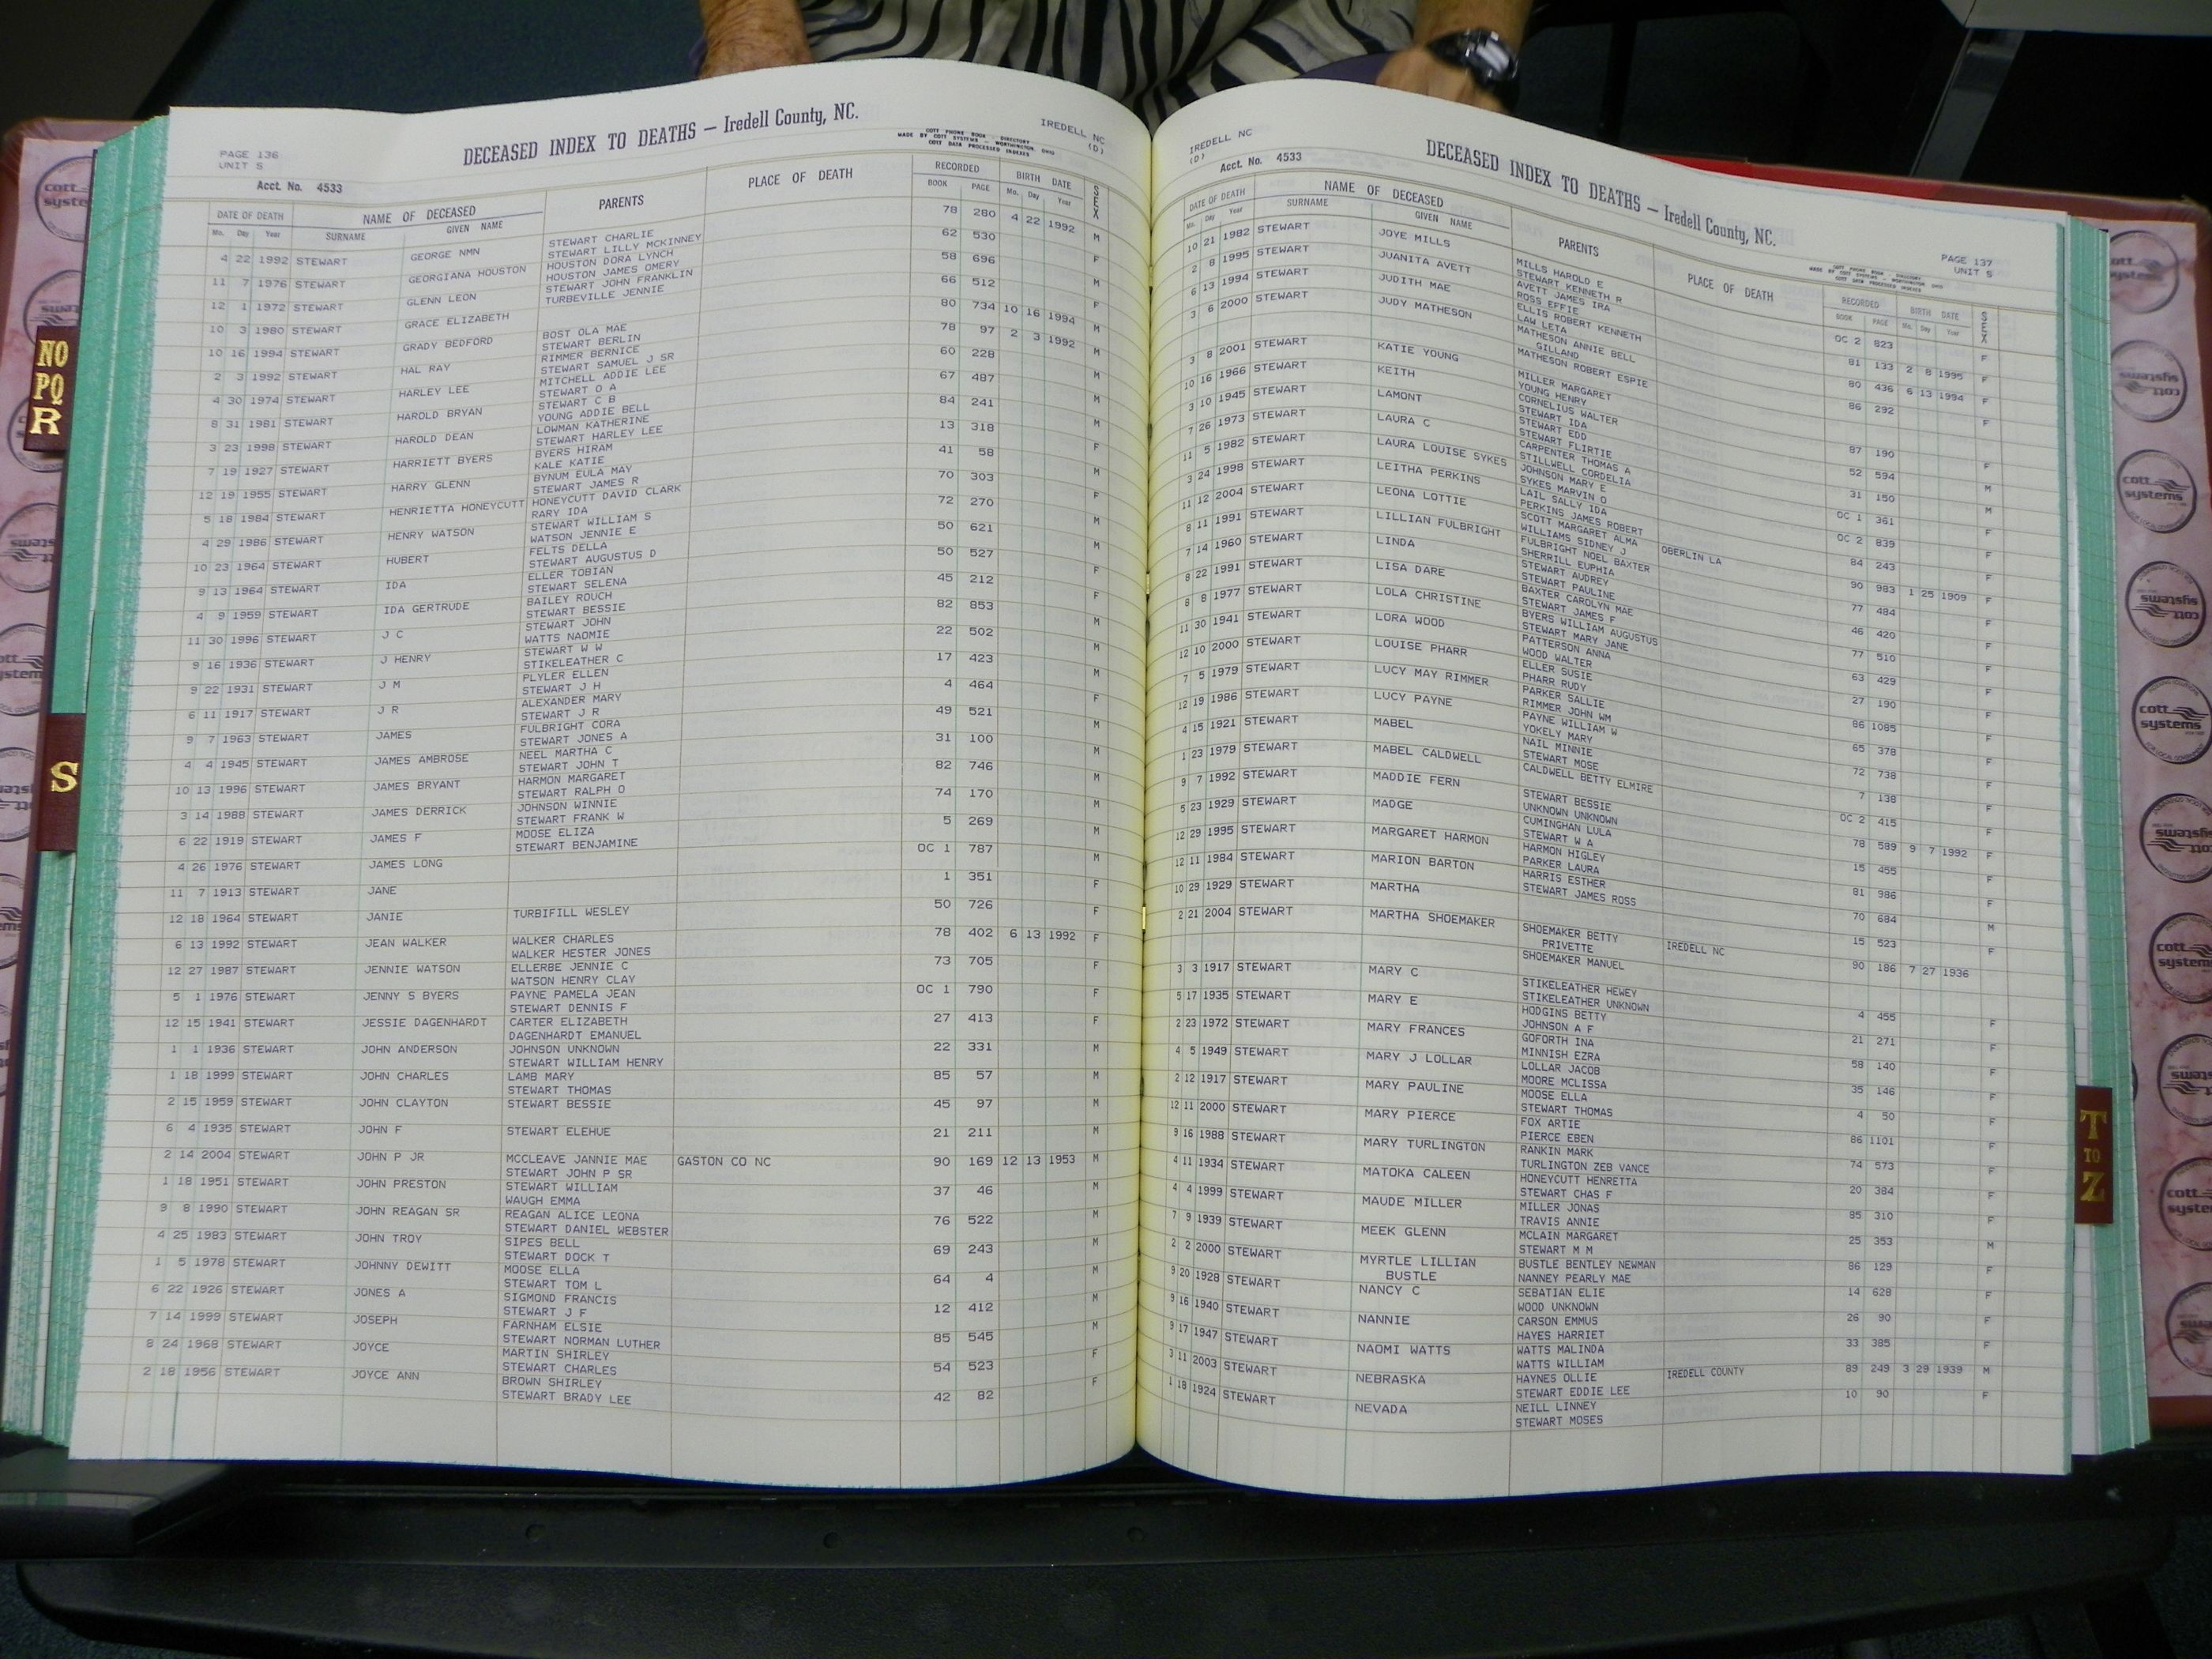 PAGE 136
UNIT S
Acct. No. 4533
DECEASED INDEX TO DEATHS — Iredell County, NC.
COTT PHONE BOOK - DIRECTORY
MADE BY COTT SYSTEMS - WORTHINGTON, OHIO
COTT DATA PROCESSED INDEXES
IREDELL NC
(D)
DATE OF DEATH NAME OF DECEASED PARENTS PLACE OF DEATH RECORDED BIRTH DATE SEX
Mo. Day Year SURNAME GIVEN NAME BOOK PAGE Mo. Day Year
4 22 1992 STEWART GEORGE NMN STEWART CHARLIE 78 280 4 22 1992 M
STEWART LILLY MCKINNEY
11 7 1976 STEWART GEORGIANA HOUSTON HOUSTON DORA LYNCH 62 530 F
HOUSTON JAMES OMERY
12 1 1972 STEWART GLENN LEON STEWART JOHN FRANKLIN 58 696
TURBEVILLE JENNIE
10 3 1980 STEWART GRACE ELIZABETH 66 512 F
10 16 1994 STEWART GRADY BEDFORD BOST OLA MAE 80 734 10 16 1994 M
STEWART BERLIN
2 3 1992 STEWART HAL RAY RIMMER BERNICE 78 97 2 3 1992 M
STEWART SAMUEL J SR
4 30 1974 STEWART HARLEY LEE MITCHELL ADDIE LEE 60 228 M
STEWART O A
8 31 1981 STEWART HAROLD BRYAN STEWART C B 67 487 M
YOUNG ADDIE BELL
3 23 1998 STEWART HAROLD DEAN LOWMAN KATHERINE 84 241 M
STEWART HARLEY LEE
7 19 1927 STEWART HARRIETT BYERS BYERS HIRAM 13 318 F
KALE KATIE
12 19 1955 STEWART HARRY GLENN BYNUM EULA MAY 41 58 M
STEWART JAMES R
5 18 1984 STEWART HENRIETTA HONEYCUTT HONEYCUTT DAVID CLARK 70 303 F
RARY IDA
4 29 1986 STEWART HENRY WATSON STEWART WILLIAM S 72 270 M
WATSON JENNIE E
10 23 1964 STEWART HUBERT FELTS DELLA 50 621 M
STEWART AUGUSTUS D
9 13 1964 STEWART IDA ELLER TOBIAN 50 527 F
STEWART SELENA
4 9 1959 STEWART IDA GERTRUDE BAILEY ROUCH 45 212 F
STEWART BESSIE
11 30 1996 STEWART J C STEWART JOHN 82 853 M
WATTS NAOMIE
9 16 1936 STEWART J HENRY STEWART W W 22 502 M
STIKELEATHER C
9 22 1931 STEWART J M PLYLER ELLEN 17 423 M
STEWART J H
6 11 1917 STEWART J R ALEXANDER MARY 4 464 F
STEWART J R
9 7 1963 STEWART JAMES FULBRIGHT CORA 49 521 M
STEWART JONES A
4 4 1945 STEWART JAMES AMBROSE NEEL MARTHA C 31 100 M
STEWART JOHN T
10 13 1996 STEWART JAMES BRYANT HARMON MARGARET 82 746 M
STEWART RALPH O
3 14 1988 STEWART JAMES DERRICK JOHNSON WINNIE 74 170 M
STEWART FRANK W
6 22 1919 STEWART JAMES F MOOSE ELIZA 5 269 M
STEWART BENJAMINE
4 26 1976 STEWART JAMES LONG OC 1 787 M
11 7 1913 STEWART JANE 1 351 F
12 18 1964 STEWART JANIE TURBIFILL WESLEY 50 726 F
6 13 1992 STEWART JEAN WALKER WALKER CHARLES 78 402 6 13 1992 F
WALKER HESTER JONES
12 27 1987 STEWART JENNIE WATSON ELLERBE JENNIE C 73 705 F
WATSON HENRY CLAY
5 1 1976 STEWART JENNY S BYERS PAYNE PAMELA JEAN OC 1 790 F
STEWART DENNIS F
12 15 1941 STEWART JESSIE DAGENHARDT CARTER ELIZABETH 27 413 F
DAGENHARDT EMANUEL
1 1 1936 STEWART JOHN ANDERSON JOHNSON UNKNOWN 22 331 M
STEWART WILLIAM HENRY
1 18 1999 STEWART JOHN CHARLES LAMB MARY 85 57 M
STEWART THOMAS
2 15 1959 STEWART JOHN CLAYTON STEWART BESSIE 45 97 M
6 4 1935 STEWART JOHN F STEWART ELEHUE 21 211 M
2 14 2004 STEWART JOHN P JR MCCLEAVE JANNIE MAE GASTON CO NC 90 169 12 13 1953 M
STEWART JOHN P SR
1 18 1951 STEWART JOHN PRESTON STEWART WILLIAM 37 46 M
WAUGH EMMA
9 8 1990 STEWART JOHN REAGAN SR REAGAN ALICE LEONA 76 522 M
STEWART DANIEL WEBSTER
4 25 1983 STEWART JOHN TROY SIPES BELL 69 243 M
STEWART DOCK T
1 5 1978 STEWART JOHNNY DEWITT MOOSE ELLA 64 4 M
STEWART TOM L
6 22 1926 STEWART JONES A SIGMOND FRANCIS 12 412 M
STEWART J F
7 14 1999 STEWART JOSEPH FARNHAM ELSIE 85 545 M
STEWART NORMAN LUTHER
8 24 1968 STEWART JOYCE MARTIN SHIRLEY 54 523 F
STEWART CHARLES
2 18 1956 STEWART JOYCE ANN BROWN SHIRLEY 42 82 F
STEWART BRADY LEE
IREDELL NC
(D)
Acct. No. 4533
DECEASED INDEX TO DEATHS — Iredell County, NC.
PAGE 137
UNIT S
COTT PHONE BOOK - DIRECTORY
MADE BY COTT SYSTEMS - WORTHINGTON, OHIO
COTT DATA PROCESSED INDEXES
DATE OF DEATH NAME OF DECEASED PARENTS PLACE OF DEATH RECORDED BIRTH DATE SEX
Mo. Day Year SURNAME GIVEN NAME BOOK PAGE Mo. Day Year
10 21 1982 STEWART JOYE MILLS MILLS HAROLD E OC 2 823 F
STEWART KENNETH R
2 8 1995 STEWART JUANITA AVETT AVETT JAMES IRA 81 133 2 8 1995 F
ROSS EFFIE
6 13 1994 STEWART JUDITH MAE ELLIS ROBERT KENNETH 80 436 6 13 1994 F
LAW LETA
3 6 2000 STEWART JUDY MATHESON MATHESON ANNIE BELL 86 292 F
GILLAND
MATHESON ROBERT ESPIE
3 8 2001 STEWART KATIE YOUNG MILLER MARGARET 87 190 F
YOUNG HENRY
10 16 1966 STEWART KEITH CORNELIUS WALTER 52 594 M
STEWART IDA
3 10 1945 STEWART LAMONT STEWART EDD 31 150 M
STEWART FLIRTIE
7 26 1973 STEWART LAURA C CARPENTER THOMAS A OC 1 361 F
STILLWELL CORDELIA
11 5 1982 STEWART LAURA LOUISE SYKES JOHNSON MARY E OC 2 839 F
SYKES MARVIN O
3 24 1998 STEWART LEITHA PERKINS LAIL SALLY IDA 84 243 F
PERKINS JAMES ROBERT
11 12 2004 STEWART LEONA LOTTIE SCOTT MARGARET ALMA OBERLIN LA 90 983 1 25 1909 F
WILLIAMS SIDNEY J
8 11 1991 STEWART LILLIAN FULBRIGHT FULBRIGHT NOEL BAXTER 77 484 F
SHERRILL EUPHIA
7 14 1960 STEWART LINDA STEWART AUDREY 46 420 F
STEWART PAULINE
8 22 1991 STEWART LISA DARE BAXTER CAROLYN MAE 77 510 F
STEWART JAMES F
8 8 1977 STEWART LOLA CHRISTINE BYERS WILLIAM AUGUSTUS 63 429 F
STEWART MARY JANE
11 30 1941 STEWART LORA WOOD PATTERSON ANNA 27 190 F
WOOD WALTER
12 10 2000 STEWART LOUISE PHARR ELLER SUSIE 86 1085 F
PHARR RUDY
7 5 1979 STEWART LUCY MAY RIMMER PARKER SALLIE 65 378 F
RIMMER JOHN WM
12 19 1986 STEWART LUCY PAYNE PAYNE WILLIAM W 72 738 F
YOKELY MARY
4 15 1921 STEWART MABEL NAIL MINNIE 7 138 F
STEWART MOSE
1 23 1979 STEWART MABEL CALDWELL CALDWELL BETTY ELMIRE OC 2 415 F
9 7 1992 STEWART MADDIE FERN STEWART BESSIE 78 589 9 7 1992 F
UNKNOWN UNKNOWN
5 23 1929 STEWART MADGE CUMINGHAN LULA 15 455 F
STEWART W A
12 29 1995 STEWART MARGARET HARMON HARMON HIGLEY 81 986 F
PARKER LAURA
12 11 1984 STEWART MARION BARTON HARRIS ESTHER 70 684 M
STEWART JAMES ROSS
10 29 1929 STEWART MARTHA 15 523 F
2 21 2004 STEWART MARTHA SHOEMAKER SHOEMAKER BETTY IREDELL NC 90 186 7 27 1936
PRIVETTE
SHOEMAKER MANUEL
3 3 1917 STEWART MARY C STIKELEATHER HEWEY 4 455 F
STIKELEATHER UNKNOWN
5 17 1935 STEWART MARY E HODGINS BETTY 21 271 F
JOHNSON A F
2 23 1972 STEWART MARY FRANCES GOFORTH INA 58 140 F
MINNISH EZRA
4 5 1949 STEWART MARY J LOLLAR LOLLAR JACOB 35 146 F
MOORE MCLISSA
2 12 1917 STEWART MARY PAULINE MOOSE ELLA 4 50 F
STEWART THOMAS
12 11 2000 STEWART MARY PIERCE FOX ARTIE 86 1101 F
PIERCE EBEN
9 16 1988 STEWART MARY TURLINGTON RANKIN MARK 74 573 F
TURLINGTON ZEB VANCE
4 11 1934 STEWART MATOKA CALEEN HONEYCUTT HENRETTA 20 384 F
STEWART CHAS F
4 4 1999 STEWART MAUDE MILLER MILLER JONAS 85 310 F
TRAVIS ANNIE
7 9 1939 STEWART MEEK GLENN MCLAIN MARGARET 25 353 M
STEWART M M
2 2 2000 STEWART MYRTLE LILLIAN BUSTLE BENTLEY NEWMAN 86 129 F
BUSTLE NANNEY PEARLY MAE
9 20 1928 STEWART NANCY C SEBATIAN ELIE 14 628 F
WOOD UNKNOWN
9 16 1940 STEWART NANNIE CARSON EMMUS 26 90 F
HAYES HARRIET
9 17 1947 STEWART NAOMI WATTS WATTS MALINDA 33 385 F
WATTS WILLIAM
3 11 2003 STEWART NEBRASKA HAYNES OLLIE IREDELL COUNTY 89 249 3 29 1939 M
STEWART EDDIE LEE
1 18 1924 STEWART NEVADA NEILL LINNEY 10 90 F
STEWART MOSES
NO
PQ
R
S
T
TO
Z
cott
systems